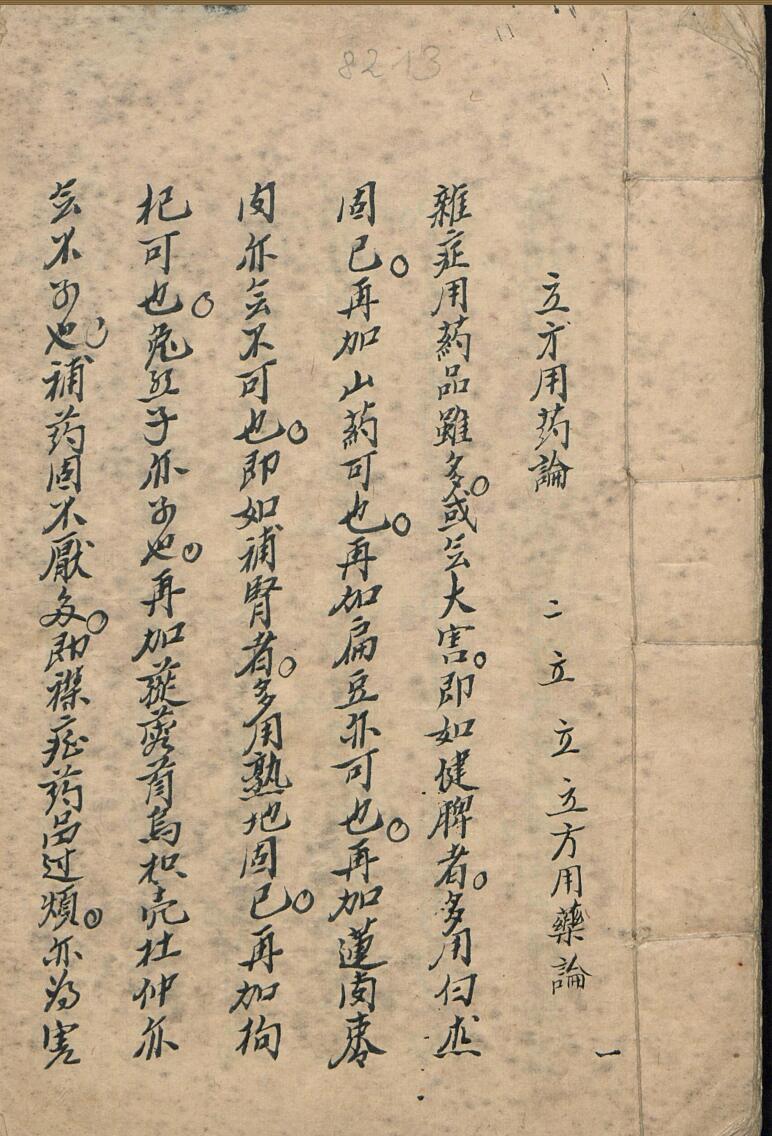 8213
立方用药論 二 立 立 立方用藥論
一
雜症用药品雖多或无大害即如健脾者多用白朮
固已再加山药可也再加扁豆亦可也再加蓮肉麥
肉亦无不可也即如補腎者多用熟地固已再加枸
杞可也兔絲子亦可也再加蓯蓉首烏枳壳杜仲亦
无不可也補药固不厭多即襍症药品过煩亦为害